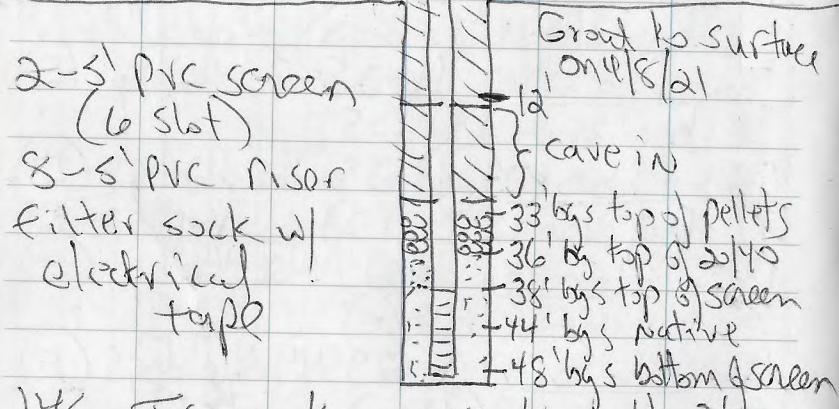 2-5' PVC screen
(6 slot)
8-5' PVC riser
filter sock w/
electrical
tape
Grout to surface
on 4/8/21
12'
cave in
33' bgs top of pellets
36' bg top of 20/40
38' bgs top of screen
44' bgs native
48' bgs bottom of screen